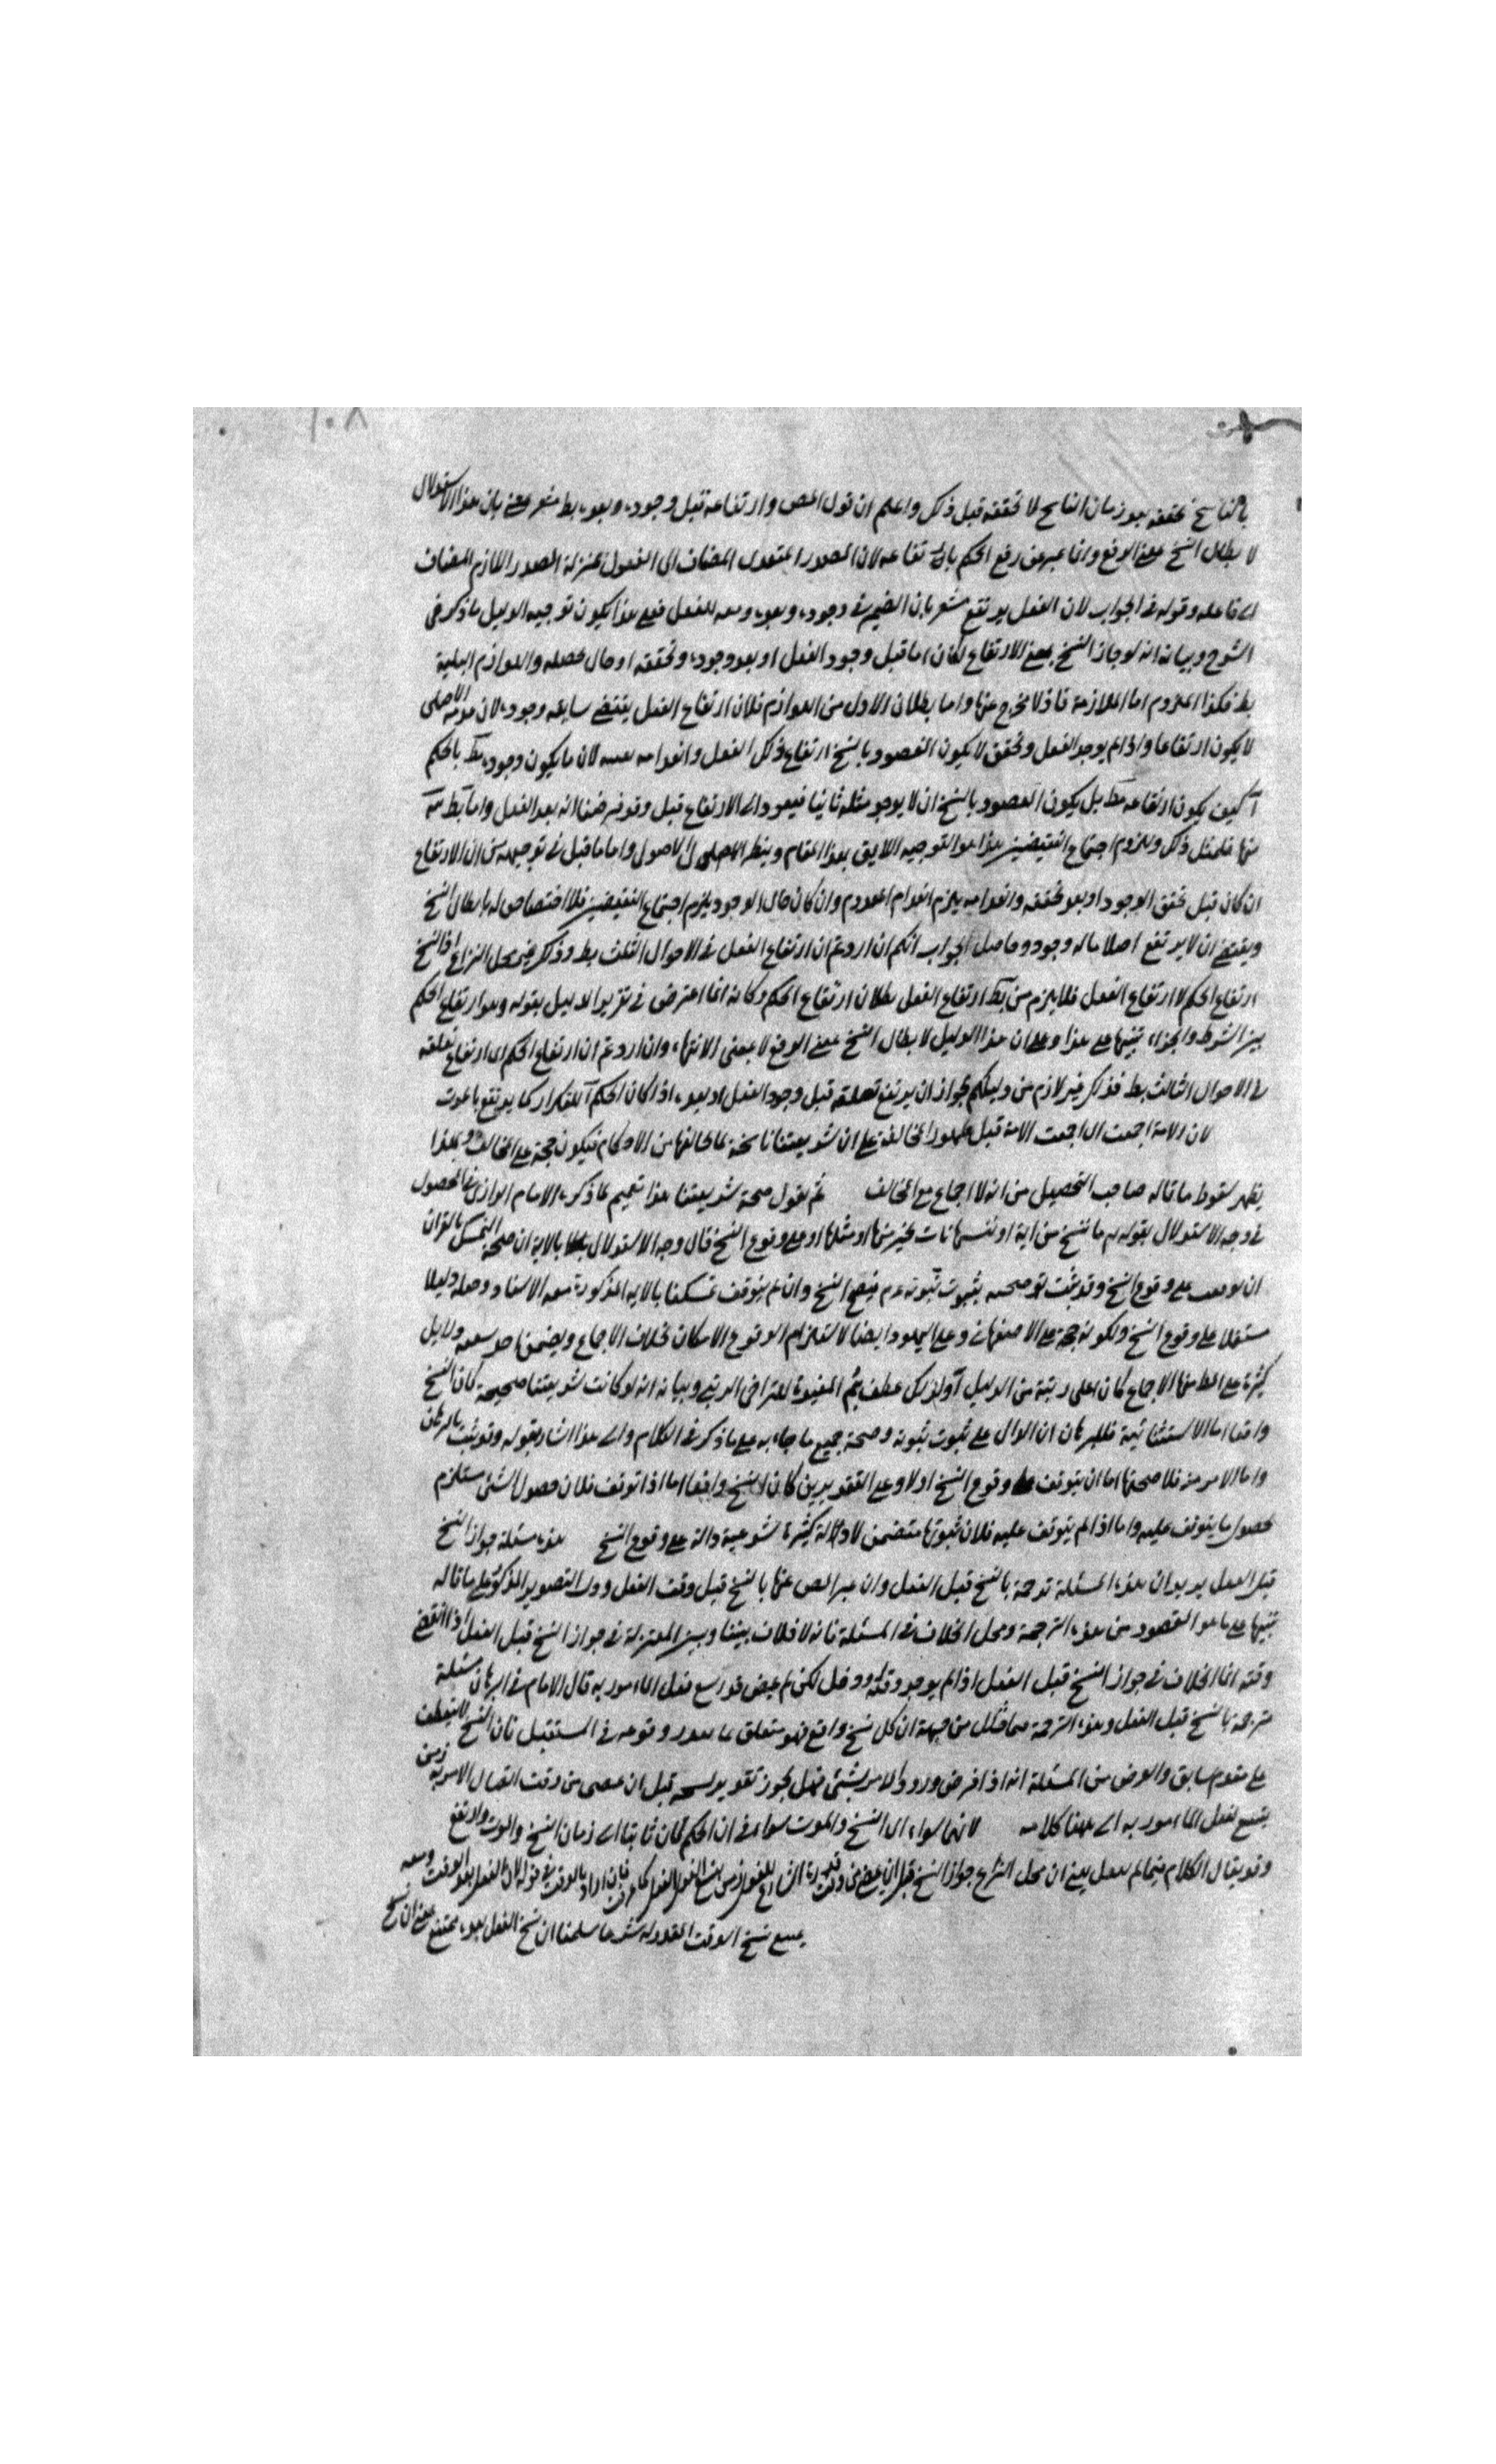 بالناسخ تحققه بعد زمان الناسخ لا تحققه قبل ذلك واعلم ان قول المص وارتفاعه قبل وجوده وبعده بط مشعر بان هذا الاستدلال
لابطال النسخ بمعنى الرفع وانما عبر عن رفع الحكم بارتفاعه لان المصدر المتعدى المضاف الى المفعول بمنزلة المصدر اللازم المضاف
الى فاعله وقوله فى الجواب لان الفعل يرتفع مشعر بان الضمير فى وجوده وبعده ومعه للفعل فعلى هذا يكون توجيه الدليل ما ذكر فى
الشرح وبيانه انه لو جاز النسخ بمعنى الارتفاع لكان اما قبل وجود الفعل او بعد وجوده وتحققه او حال حصوله واللوازم الثلثة
بط فكذا الملزوم اما الملازمة فاذ لا مخرج عنها واما بطلان الاول من اللوازم فلان ارتفاع الفعل يقتضى سابقة وجوده لان عدمه الاصلى
لا يكون ارتفاعا واذا لم يوجد الفعل وتحقق لا يكون المقصود بالنسخ ارتفاع ذلك الفعل وانعدامه لان ما يكون وجوده بالحكم
كيف يكون ارتفاعه بل يكون المقصود بالنسخ ان لا يوجد مثله ثانيا فيعود الى الارتفاع قبل وقد فرضنا انه بعد الفعل واما
منها فلمثل ذلك ولزوم اجتماع النقيضين هذا هو التوجيه اللايق بهذا المقام وينظر الى الاصول واما ما قيل فى توجيهه من ان الارتفاع
ان كان قبل تحقق الوجود او بعد تحققه وانعدامه يلزم انعدام المعدوم وان كان حال الوجود يلزم اجتماع النقيضين فلا اختصاص له بابطال النسخ
ويقتضى ان لا يرتفع اصلا ما له وجود وحاصل الجواب انكم ان اردتم ان ارتفاع الفعل فى الاحوال الثلث بط وذلك غير محل النزاع اذ النسخ
ارتفاع الحكم لا ارتفاع الفعل فلا يلزم من ارتفاع الفعل بطلان ارتفاع الحكم وكانه انما اعترض فى تقرير الدليل بقوله وهو ارتفاع الحكم
بين الشرط والجزاء تنبيها على هذا وعلى ان هذا الدليل لابطال النسخ بمعنى الرفع لا بمعنى الانتهاء وان اردتم ان ارتفاع الحكم اى ارتفاع تعلقه
فى الاحوال الثالث بط فذلك غير لازم من دليلكم لجواز ان يرتفع تعلقه قبل وجود الفعل او بعده اذا كان الحكم للتكرار كما يرتفع بالموت
لان الامة اجمعت اى اجمعت الامة قبل ظهور المخالف على ان شريعتنا ناسخة لما خالفها من الاحكام فيكون حجة على المخالف وبهذا
يظهر سقوط ما قاله صاحب التحصيل من انه لا اجماع مع المخالف ثم نقول صحة شريعتنا هذا تعميم لما ذكره الامام الرازى فى المحصول
فى وجه الاستدلال بقوله ما ننسخ من اية او ننسها نات بخير منها او مثلها او على وقوع النسخ قال وجه الاستدلال بالاية ان صحة التمسك بالقران
ان توقف على وقوع النسخ وقد ثبت صحته بثبوت نبوته عم فيصح النسخ وان لم يتوقف تمسكنا بالاية المذكورة الاستاد وجعله دليلا
مستقلا على وقوع النسخ ولكونه حجة على الاصفهانى وعلى اليهود ايضا لاستلزام الوقوع الامكان بخلاف الاجماع دلايل
كثيرة على منها الاجماع كان اعلى رتبة من الدليل ولذلك عطف بثم المفيدة للتراخى الرتبى وبيانه انه لو كانت شريعتنا صحيحة كان النسخ
واقعا اما الاستثنائية فللبرهان الدال على ثبوت نبوته وصحة جميع ما جاء به على ما ذكر فى الكلام والى هذا اشار بقوله وقد ثبت بالبرهان
واما فلا صحتها اما ان يتوقف على وقوع النسخ اولا وعلى التقديرين كان النسخ واقعا اما اذا توقف فلان حصول الشئ يستلزم
حصول ما يتوقف عليه واما اذا لم يتوقف عليه فلان ثبوتها متضمن لادلة كثيرة شرعية دالة على وقوع النسخ هذه مسئلة جواز النسخ
قبل الفعل يريد ان هذه المسئلة ترجمة بالنسخ قبل الفعل وان عبر المص عنها بالنسخ قبل وقت الفعل التصوير المذكور على ما قاله
تنبيها على ما هو المقصود من هذه الترجمة ومحل الخلاف فى المسئلة فانه لا خلاف بيننا وبين المعتزلة فى جواز النسخ قبل الفعل اذا انقضى
وقته انما الخلاف فى جواز النسخ قبل الفعل اذا لم يوجد وقته او دخل لكن لم يمض قدر يسع فعل المامور به قال الامام فى البرهان مسئلة
مترجمة بالنسخ قبل الفعل وهذه الترجمة من جهة ان كل نسخ واقع فهو متعلق بما وقوعه فى المستقبل فان النسخ لا ينعطف
على مقدم سابق والغرض من المسئلة انه اذا فرض ورود الامر بشئ فهل يجوز تقدير نسخه قبل ان يمضى من وقت اتصال الامر به زمن
يتسع لفعل المامور به الى ههنا كلامه لانهما سواء اى النسخ والموت سواء فى ان الحكم كان ثابتا الى زمان النسخ والموت وارتفع
وقد يقال الكلام فيما لم يفعل يعنى ان محل النزاع جواز النسخ قبل ان يمضى من وقت الشارع للفعل زمن يسع الفعل كما عرفت فان اراد بالوقت فى قوله الفعل بعد الوقت ومعه
يمتنع نسخ الوقت المقدر له شرعا سلمنا ان نسخ الفعل بعده يمتنع بمعنى ان نسخ